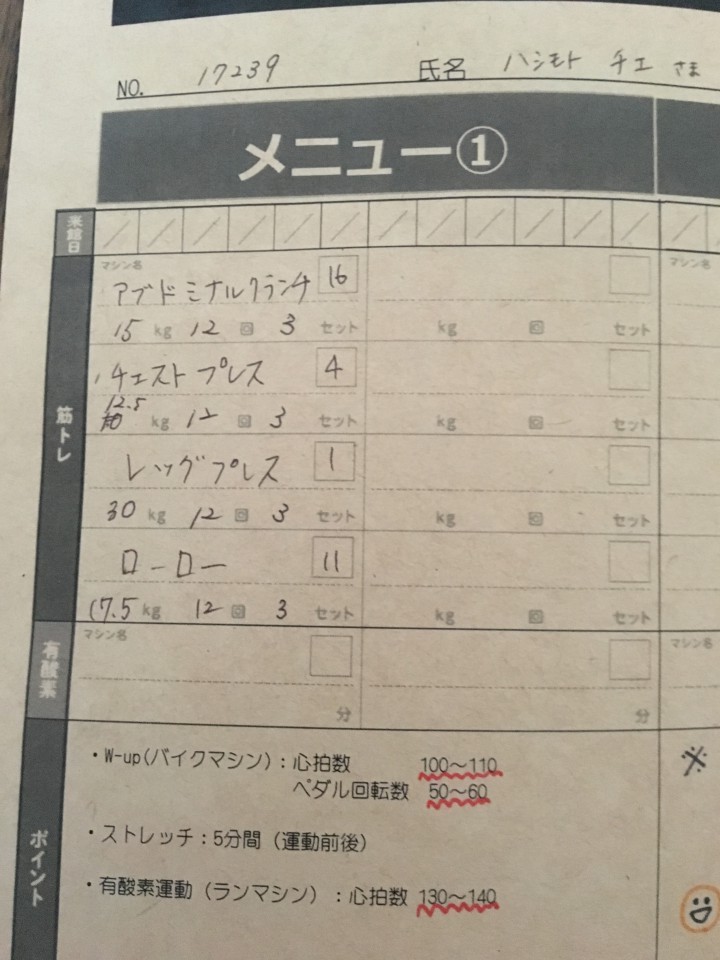 NO. 17239 氏名 ハシモト チエ さま
メニュー①
来館日 / / / / / / / / / / / / / /
筋トレ
マシン名 マシン名
アブドミナルクランチ 16
15 kg 12 回 3 セット kg 回 セット
チェストプレス 4
12.5 kg 12 回 3 セット kg 回 セット
レッグプレス 1
30 kg 12 回 3 セット kg 回 セット
ローロー 11
17.5 kg 12 回 3 セット kg 回 セット
有酸素
マシン名 マシン名
分 分
ポイント
・W-up(バイクマシン):心拍数 100~110
ペダル回転数 50~60
・ストレッチ:5分間(運動前後)
・有酸素運動(ランマシン):心拍数 130~140
※